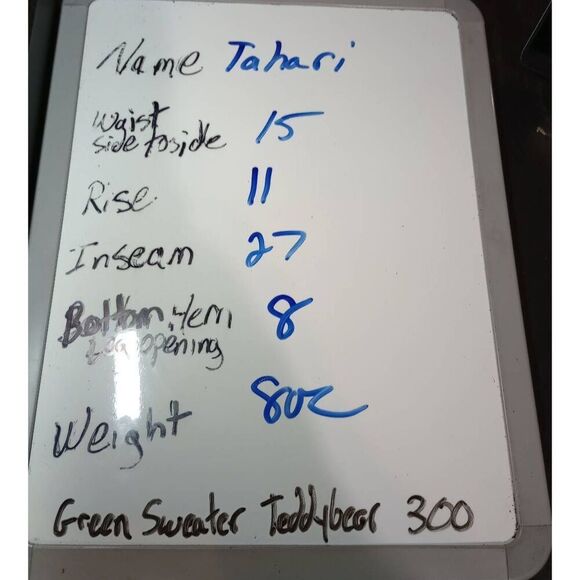 Name Tahari
Waist
side to side 15
Rise 11
Inseam 27
Bottom Hem 8
Leg opening
Weight 8oz
Green Sweater Teddybear 300